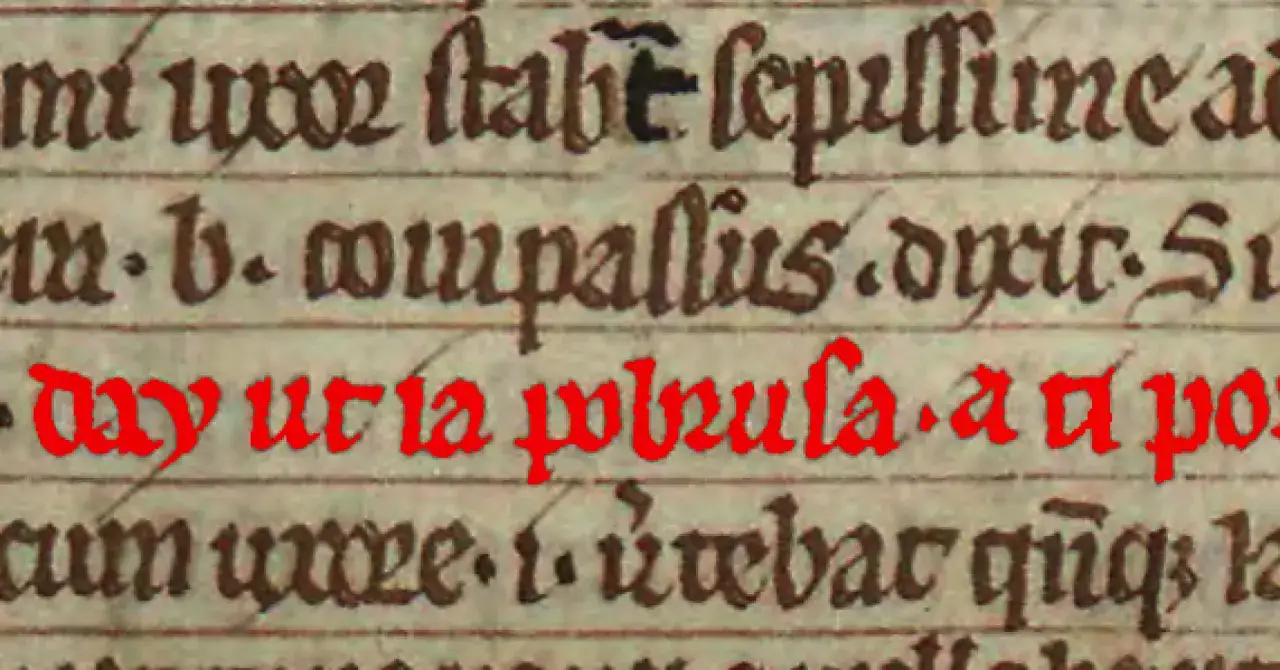 mi uxor stabt̄ sepissime ad
em · b · compassus · dixit · Si
· day ut ia pobrusa · a ti poz
cum uxore · i · u͛tebat qn̄q; la